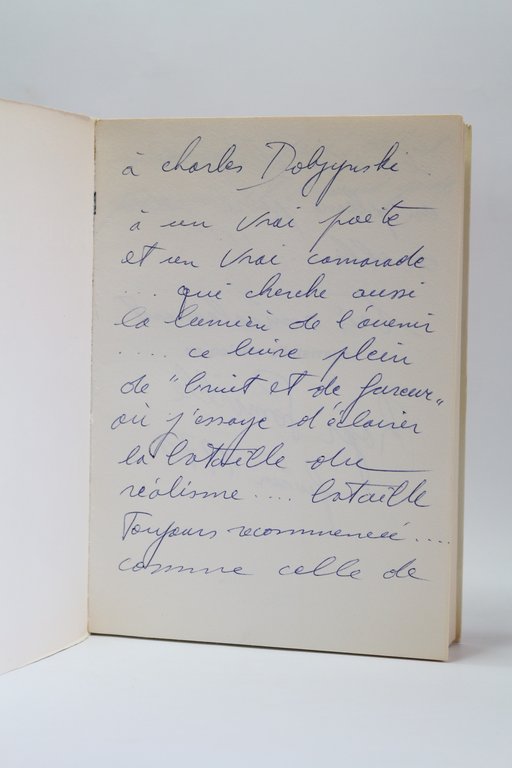 à Charles Dobzynski
à un vrai poète
et un vrai camarade
... qui cherche aussi
la lumière de l'avenir
..... ce livre plein
de "bruit et de fureur"
où j'essaye d'éclairer
la bataille du
réalisme .... bataille
Toujours recommencée ....
comme celle de